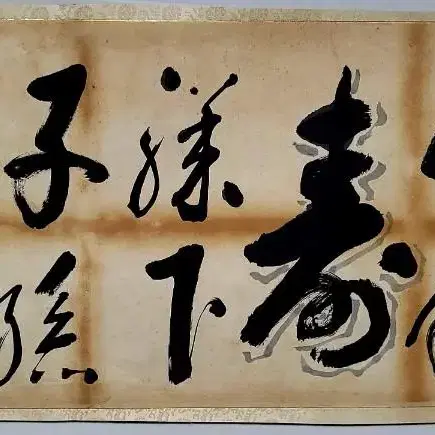 壽
膝下
子孫